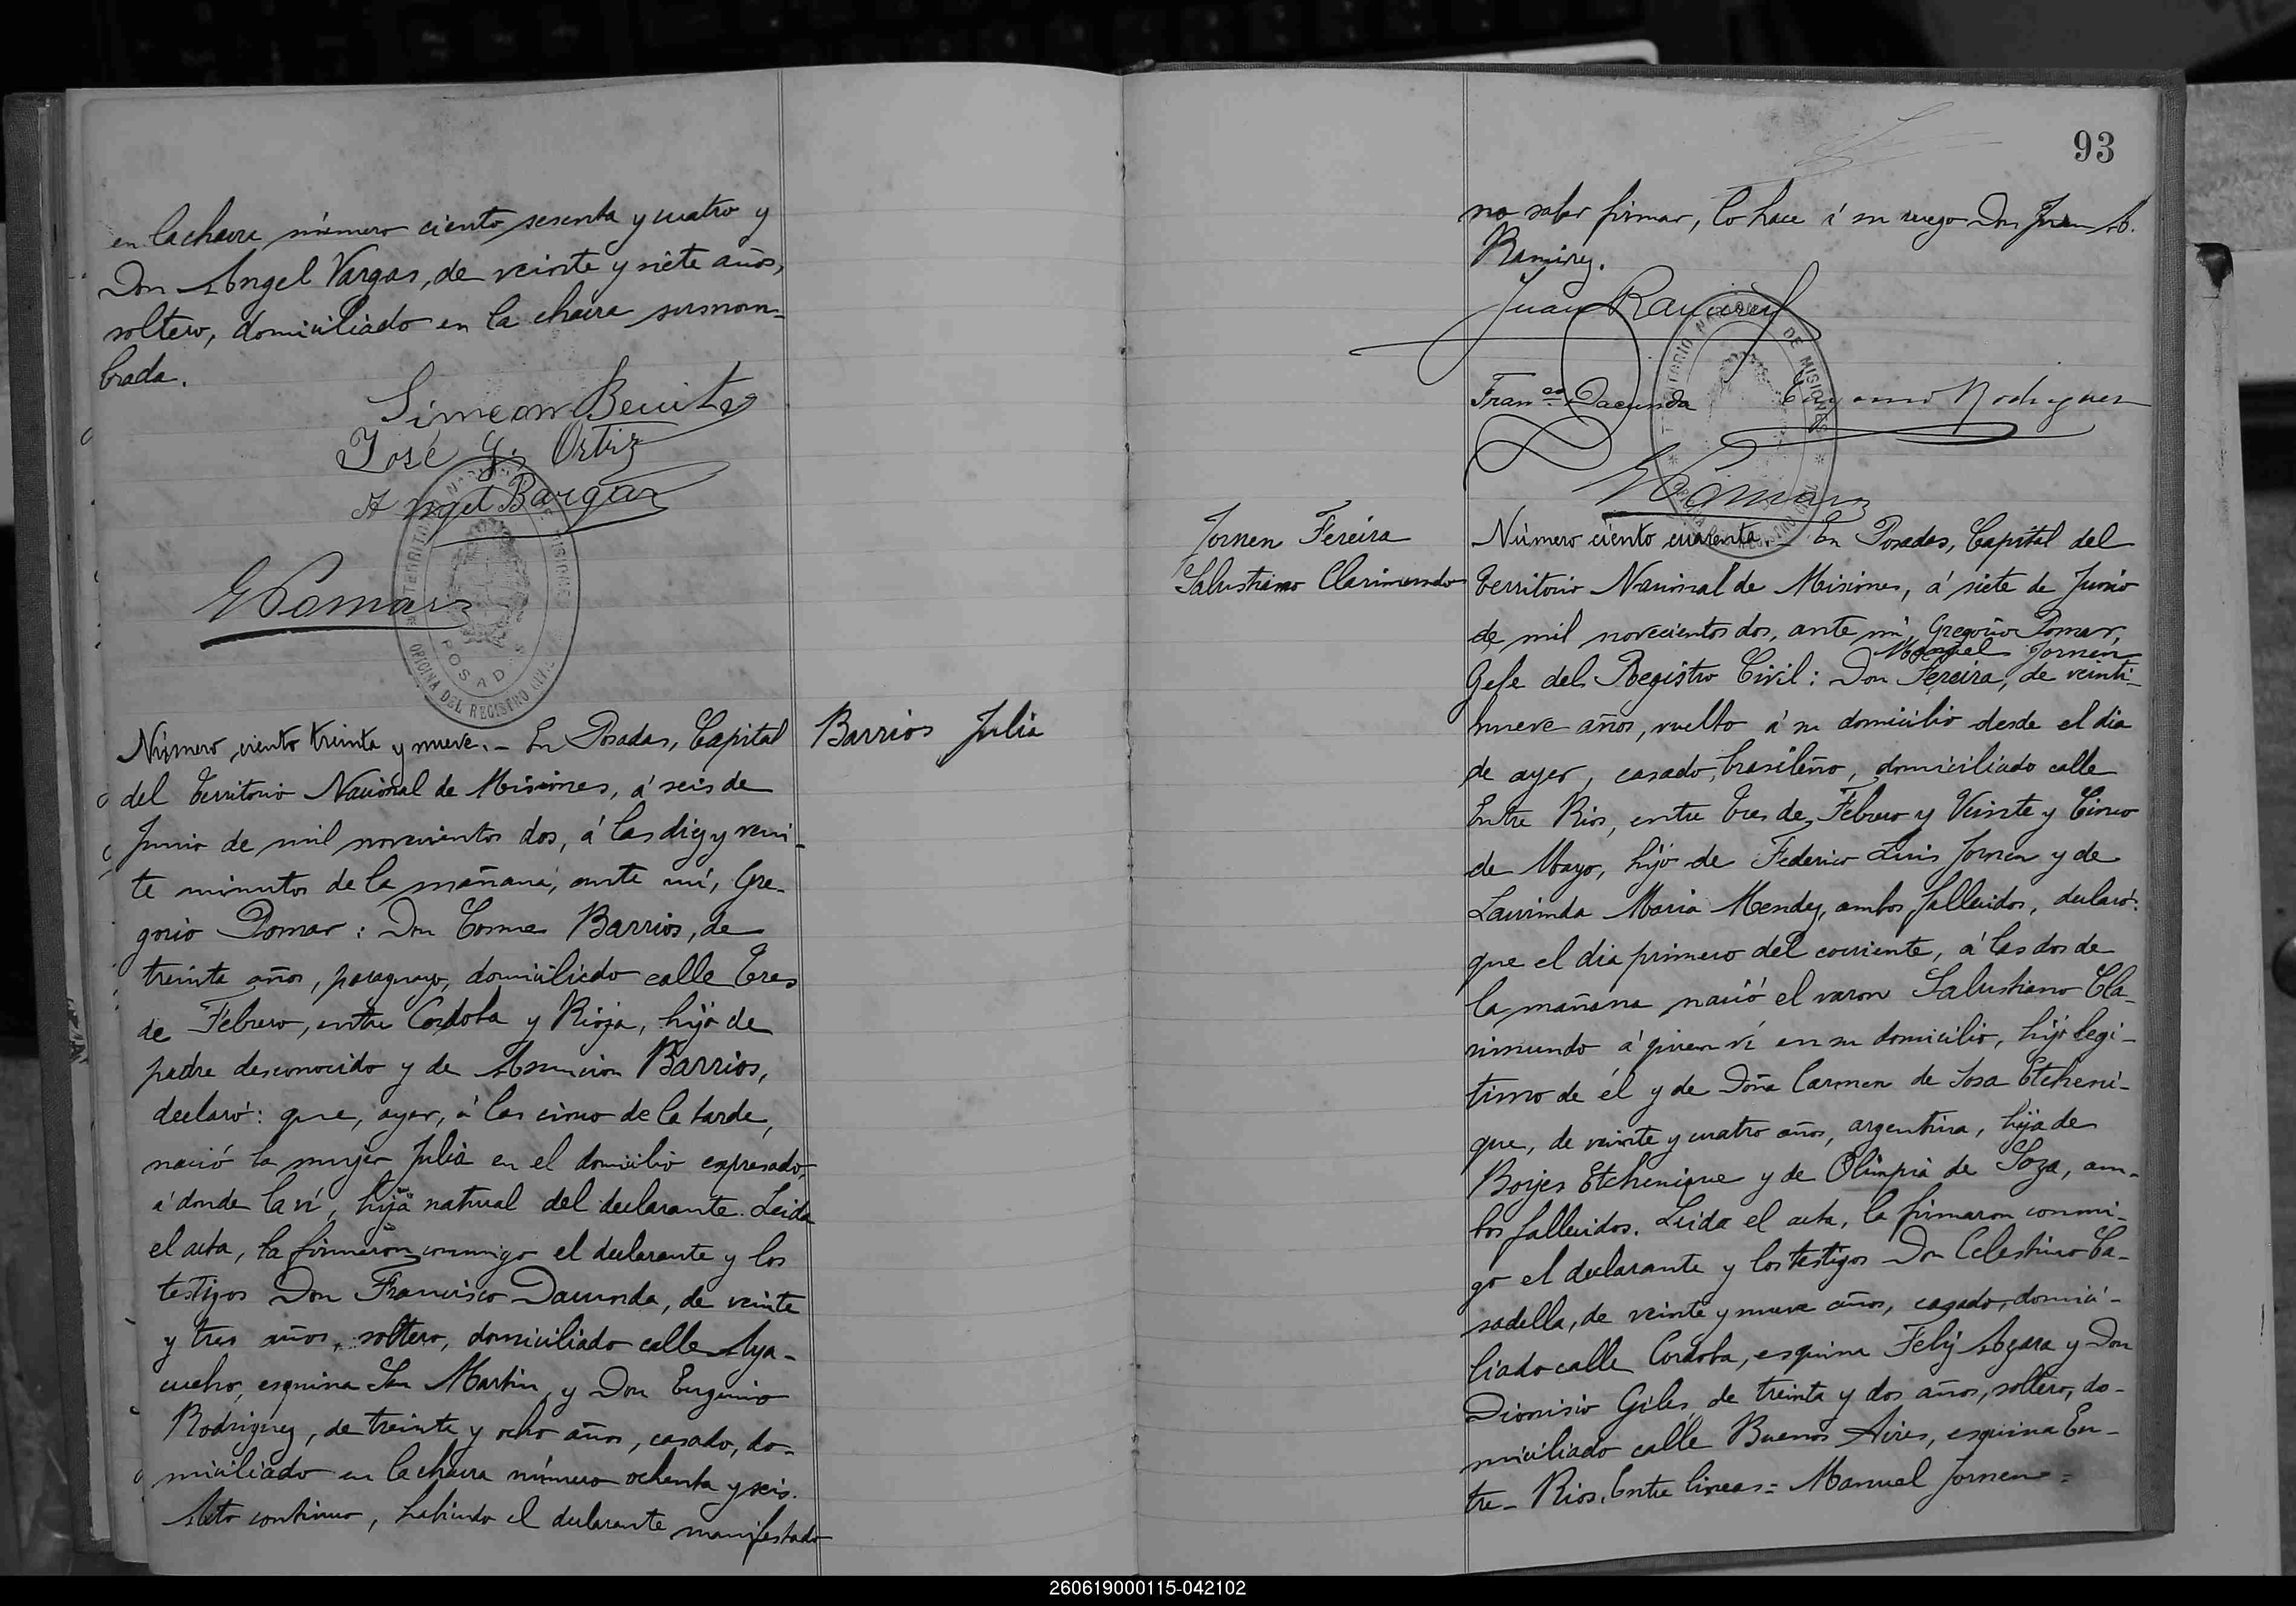 en la chacra número ciento sesenta y cuatro y
Don Angel Vargas, de veinte y siete años,
soltero, domiciliado en la chacra susnom-
brada.
Simeon Benitez
José G. Ortiz
Angel Bargas
GPomar
TERRITORIO NACIONAL DE MISIONES
POSADAS
OFICINA DEL REGISTRO CIVIL
Barrios Julia
Número ciento treinta y nueve. - En Posadas, Capital
del Territorio Nacional de Misiones, á seis de
Junio de mil novecientos dos, á las diez y vein-
te minutos de la mañana, ante mí, Gre-
gorio Pomar: Don Cosme Barrios, de
treinta años, paraguayo, domiciliado calle Tres
de Febrero, entre Cordoba y Rioja, hijo de
padre desconocido y de Asuncion Barrios,
declaró: que, ayer, á las cinco de la tarde,
nació la mujer Julia en el domicilio expresado,
á donde la ví, hija natural del declarante. Leida
el acta, la firmaron conmigo el declarante y los
testigos Don Francisco Dacunda, de veinte
y tres años, soltero, domiciliado calle Aya-
cucho, esquina San Martin, y Don Eugenio
Rodriguez, de treinta y ocho años, casado, do-
miciliado en la chacra número ochenta y seis.
Acto continuo, habiendo el declarante manifestado
93
no saber firmar, lo hace á su ruego Don Juan B.
Ramirez.
Juan Ramirez
Fran.co Dacunda Eugenio Rodriguez
GPomar
TERRITORIO NACIONAL DE MISIONES
Jornen Fereira
Salustiano Clarimundo
Número ciento cuarenta. - En Posadas, Capital del
Territorio Nacional de Misiones, á siete de Junio
de mil novecientos dos, ante mí, Gregorio Pomar,
Manuel Jornen
Gefe del Registro Civil: Don Fereira, de veinti-
nueve años, vuelto á su domicilio desde el dia
de ayer, casado, brasileño, domiciliado calle
Entre Rios, entre Tres de Febrero y Veinte y Cinco
de Mayo, hijo de Federico Luis Jornen y de
Laurinda Maria Mendez, ambos fallecidos, declaró:
que el dia primero del corriente, á las dos de
la mañana nació el varon Salustiano Cla-
rimundo á quien ví en su domicilio, hijo legi-
timo de él y de Doña Carmen de Sosa Etcheni-
que, de veinte y cuatro años, argentina, hija de
Borjes Etchenique y de Olimpia de Soza, am-
bos fallecidos. Leida el acta, la firmaron conmi-
go el declarante y los testigos Don Celestino Ca-
sadella, de veinte y nueve años, casado, domici-
liado calle Cordoba, esquina Feliz Azara y Don
Dionisio Giles, de treinta y dos años, soltero, do-
miciliado calle Buenos Aires, esquina En-
tre-Rios. Entre lineas = Manuel Jornen =
260619000115-042102